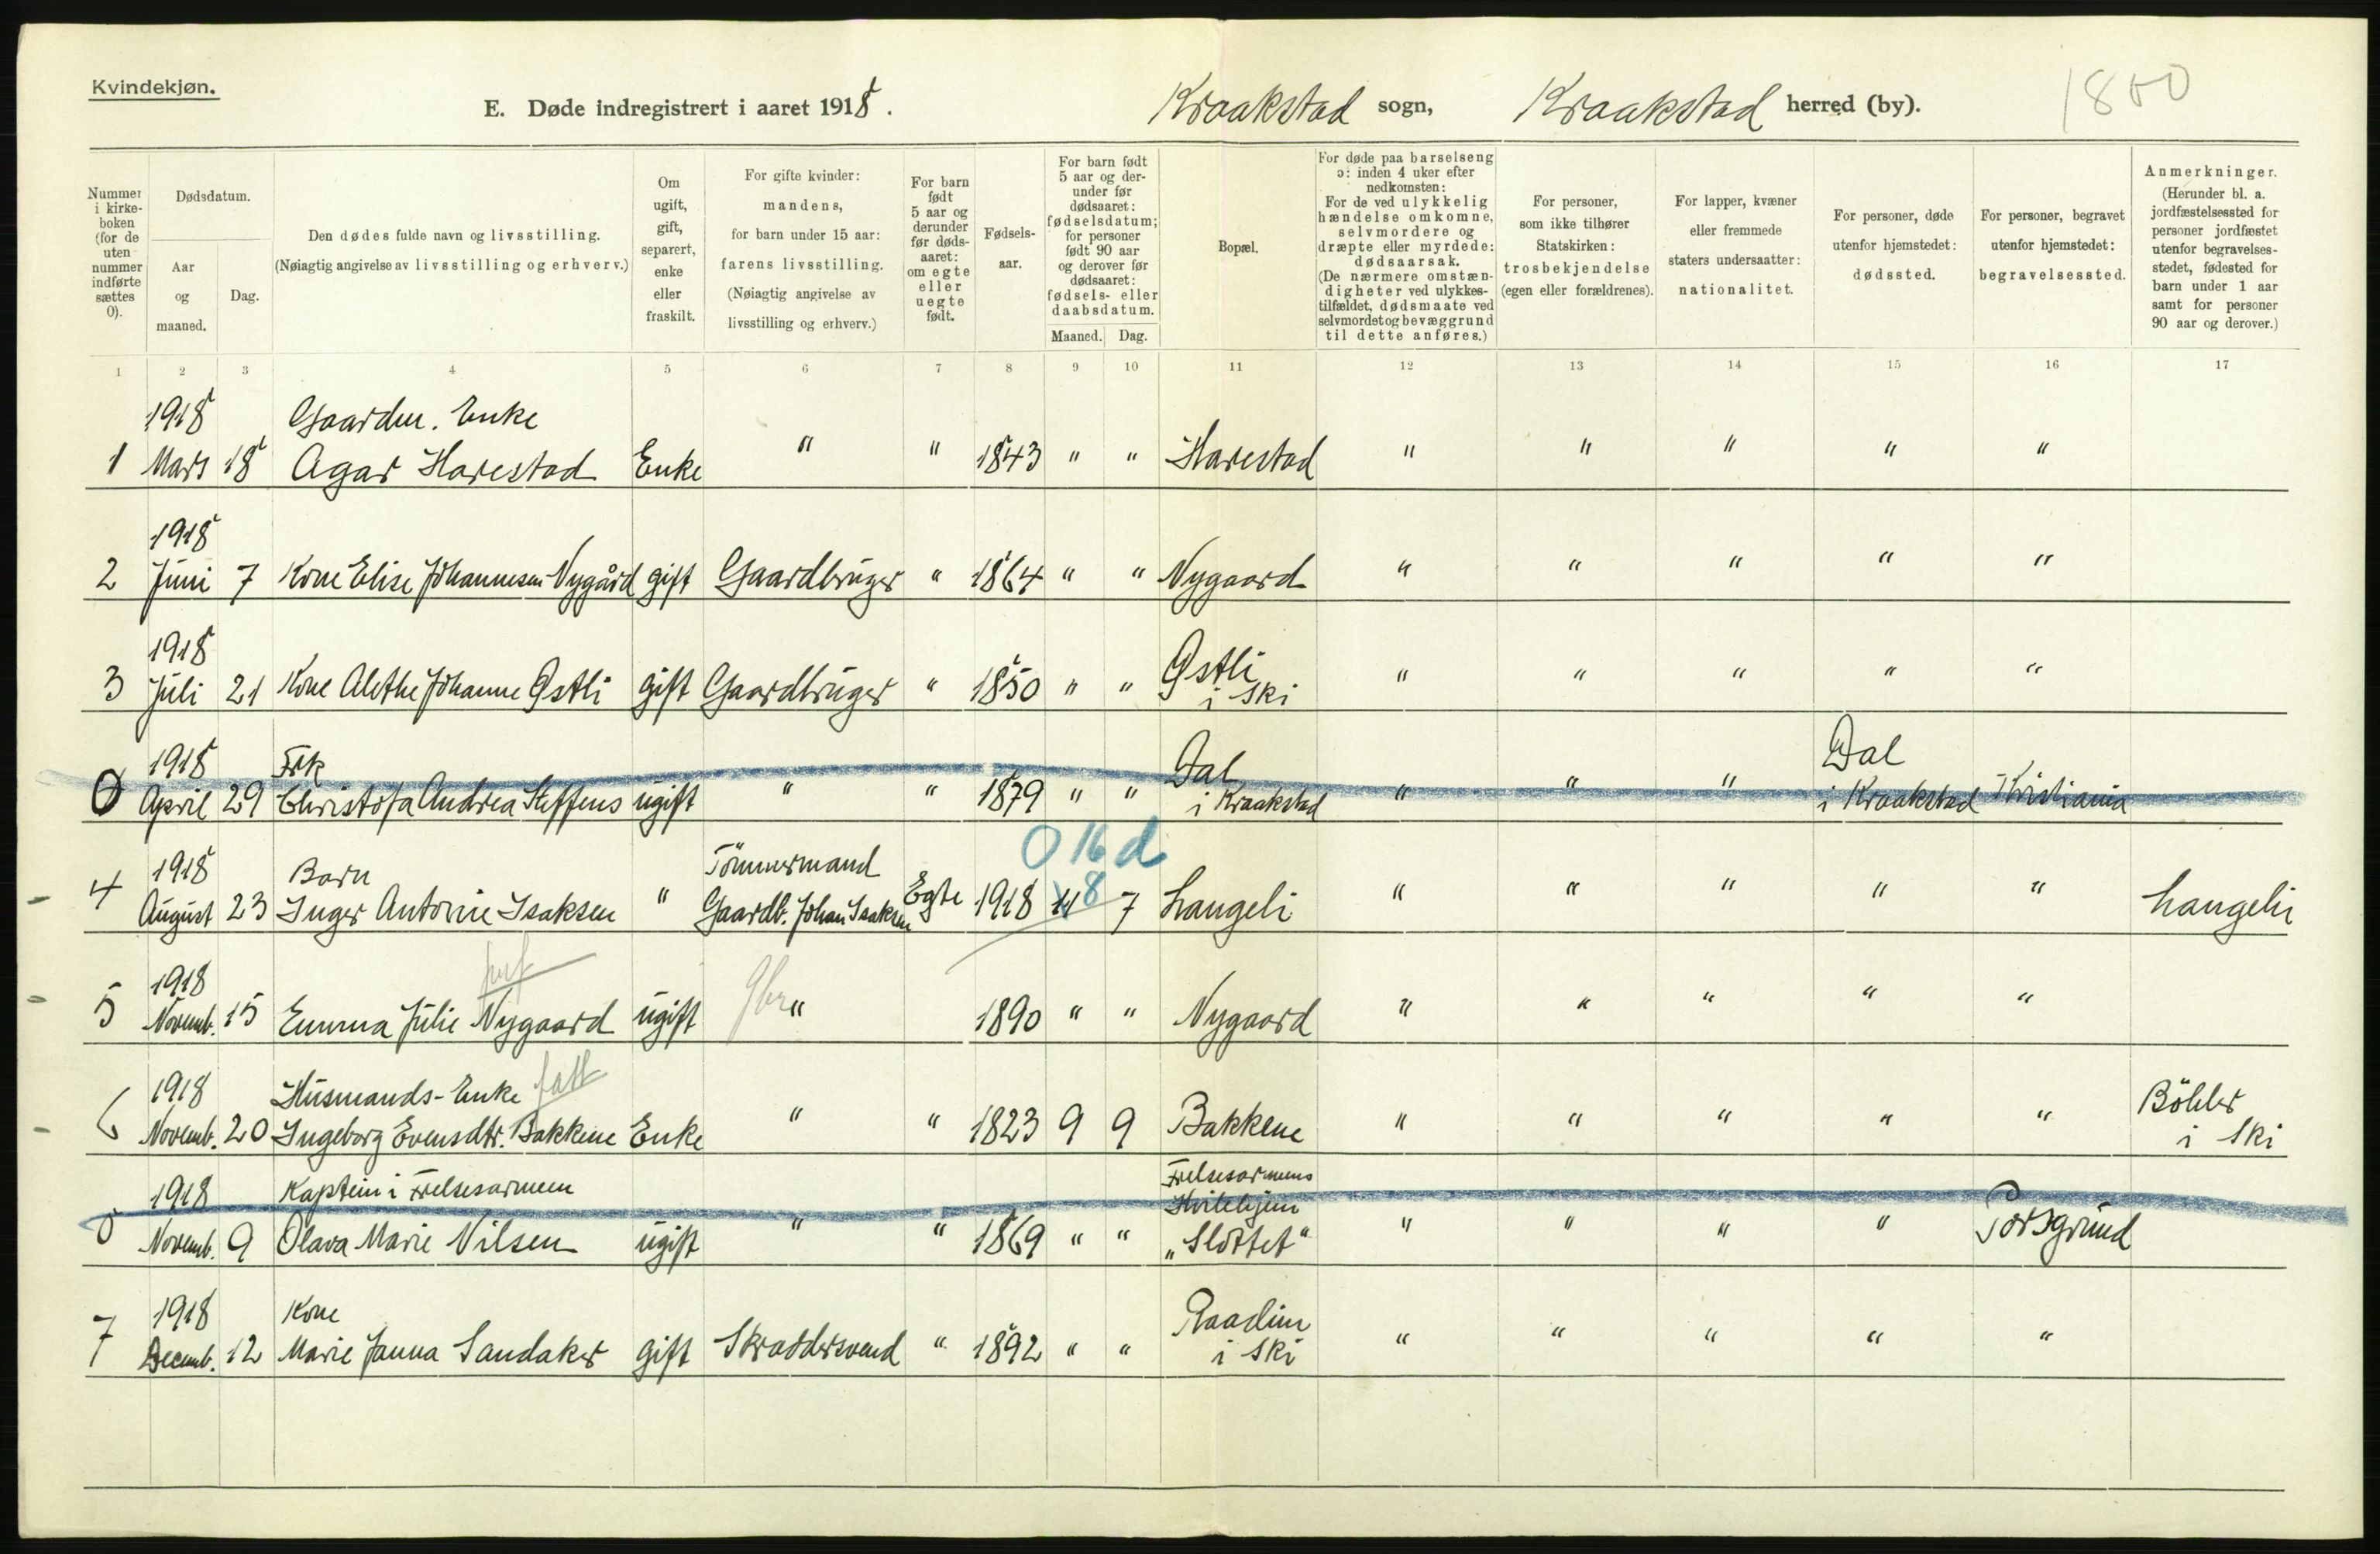 Kvindekjøn.
E. Døde indregistrert i aaret 1918. Kraakstad sogn, Kraakstad herred (by).
1800
Nummer i kirkeboken (for de uten nummer indførte sættes 0).
Dødsdatum.
Aar og maaned.
Dag.
Den dødes fulde navn og livsstilling.
(Nøiagtig angivelse av livsstilling og erhverv.)
Om ugift, gift, separert, enke eller fraskilt.
For gifte kvinder: mandens, for barn under 15 aar: farens livsstilling.
(Nøiagtig angivelse av livsstilling og erhverv.)
For barn født 5 aar og derunder før dødsaaret: om egte eller uegte født.
Fødselsaar.
For barn født 5 aar og derunder før dødsaaret: fødselsdatum; for personer født 90 aar og derover før dødsaaret: fødsels- eller daabsdatum.
Maaned. Dag.
Bopæl.
For døde paa barselseng ɔ: inden 4 uker efter nedkomsten:
For de ved ulykkelig hændelse omkomne, selvmordere og dræpte eller myrdede: dødsaarsak.
(De nærmere omstændigheter ved ulykkestilfældet, dødsmaate ved selvmordet og bevæggrund til dette anføres.)
For personer, som ikke tilhører Statskirken: trosbekjendelse (egen eller forældrenes).
For lapper, kvæner eller fremmede staters undersaatter: nationalitet.
For personer, døde utenfor hjemstedet: dødssted.
For personer, begravet utenfor hjemstedet: begravelsessted.
Anmerkninger.
(Herunder bl. a. jordfæstelsessted for personer jordfæstet utenfor begravelsesstedet, fødested for barn under 1 aar samt for personer 90 aar og derover.)
1 2 3 4 5 6 7 8 9 10 11 12 13 14 15 16 17
1918 Gaardm. Enke
1 Mars 18 Agar Harestad Enke " " 1843 " " Harestad " " " " "
1918
2 Juni 7 Kone Elise Johannesen Nygård gift Gaardbruger " 1864 " " Nygaard " " " " "
1918 Østli
3 Juli 21 Kone Alethe Johanne Østli gift Gaardbruger " 1850 " " i Ski " " " " "
1918 Frk Dal Dal
0 April 29 Christofa Andrea Steffens ugift " " 1879 " " i Kraakstad " " " i Kraakstad Kristiania
0 16 d
1918 Barn Tömmermand
4 August 23 Inger Antonie Isaksen " Gaardb. Johan Isaksen Egte 1918 11 8 7 Langeli " " " " " Langeli
1918
5 Novemb. 15 Emma Julie Nygaard ugift " 1890 " " Nygaard " " " " "
1918 Husmands-Enke fatt Böhler
6 Novemb. 20 Ingeborg Evensdtr. Bakkene Enke " " 1823 9 9 Bakkene " " " " " i Ski
1918 Kaptein i Frelsesarmeen Frelsesarmeens Hvilehjem
0 Novemb. 9 Olava Marie Nilsen ugift " " 1869 " " „Slottet" " " " " Porsgrund
1918 Kone Raadim
7 Decemb. 12 Marie Janna Sandaker gift Skraddersvend " 1892 " " i Ski " " " " "